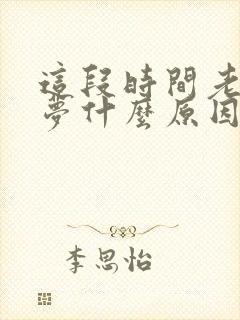 這段時間老
夢什麼原因
李思怡